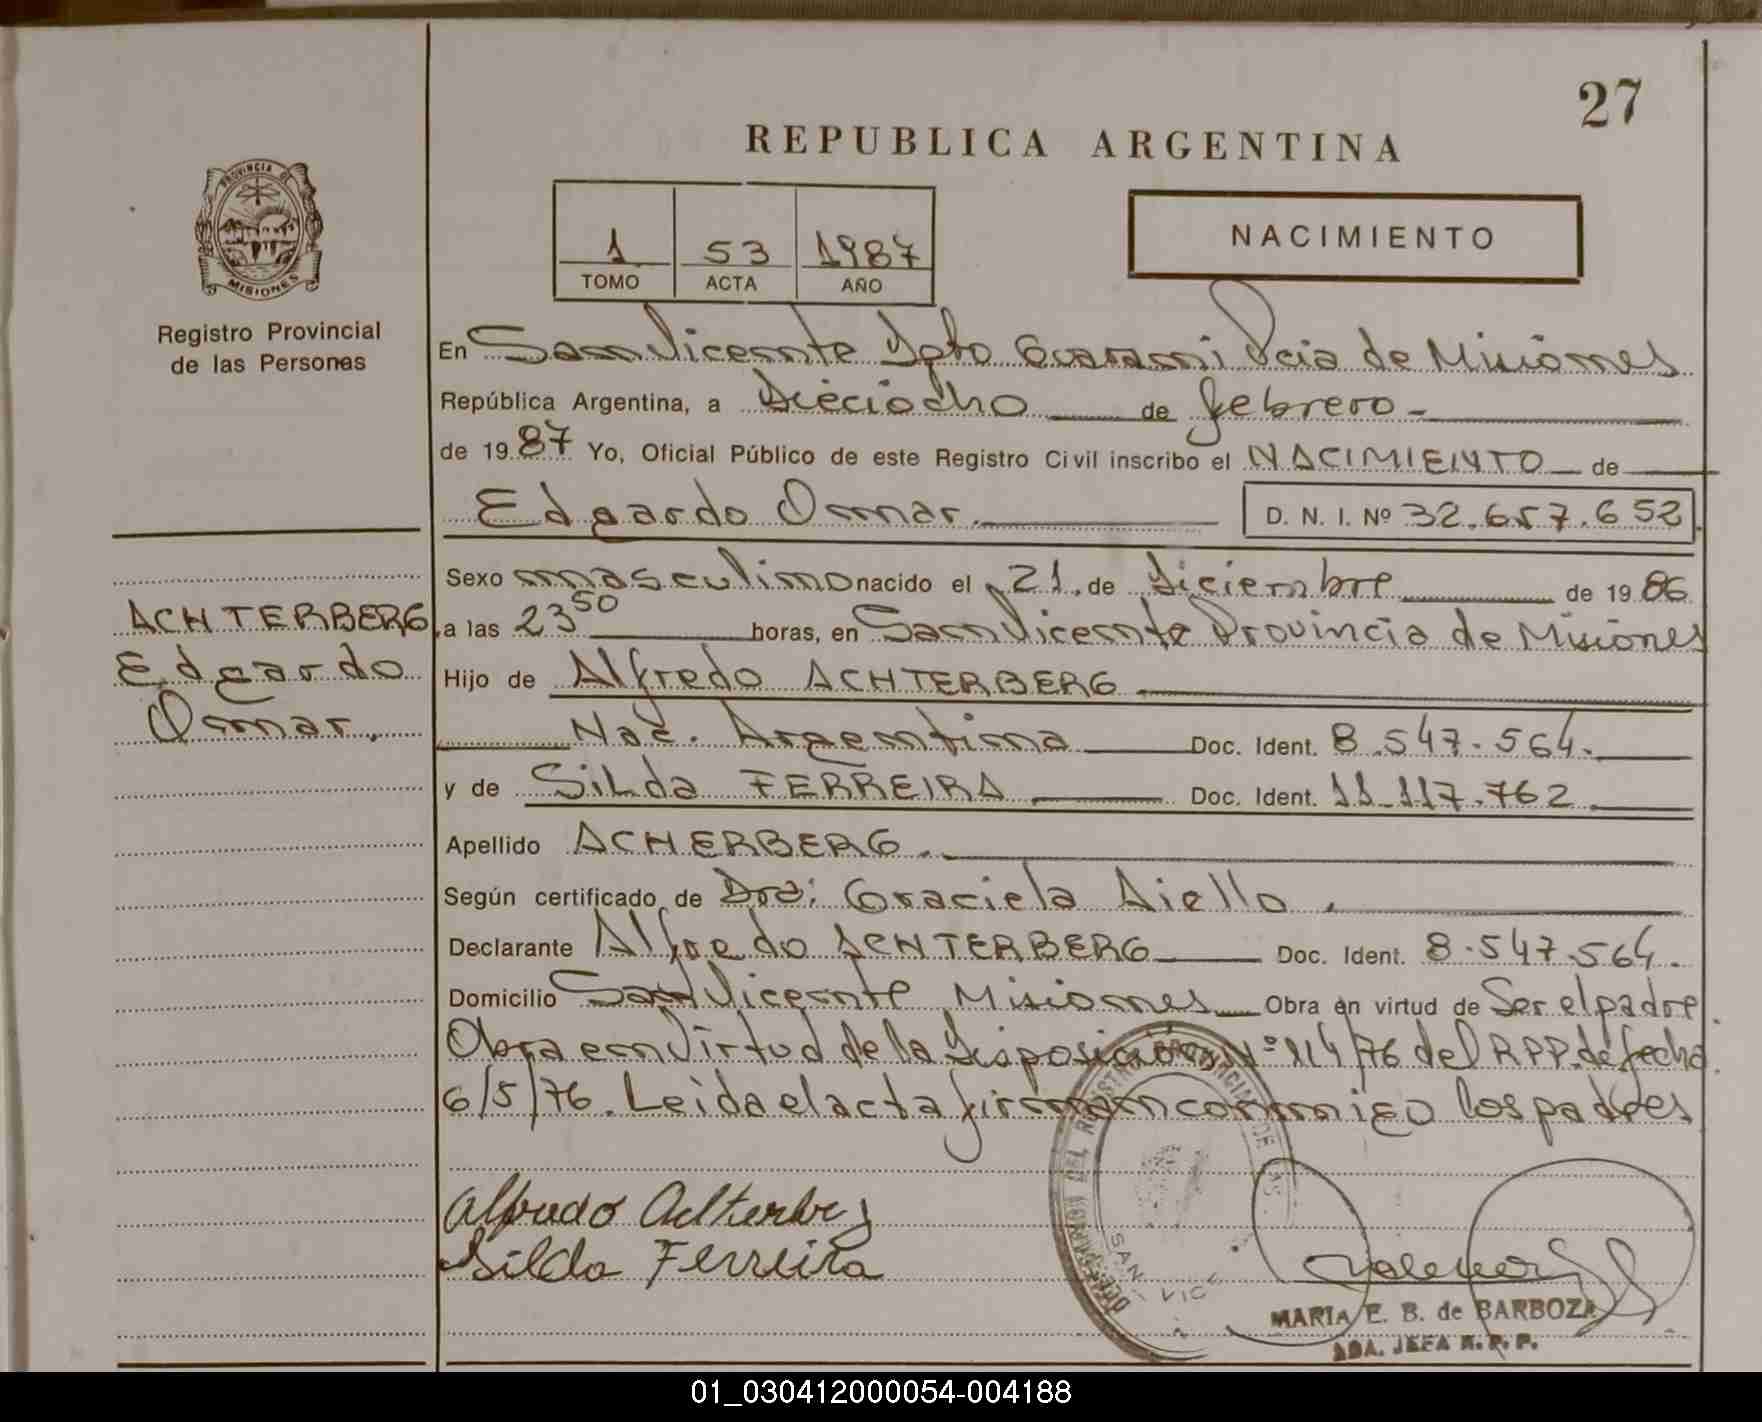 27
REPUBLICA ARGENTINA
PROVINCIA DE
MISIONES
Registro Provincial
de las Personas
1 53 1987
TOMO ACTA AÑO
NACIMIENTO
En San Vicente Dpto Guarani Pcia de Misiones
República Argentina, a Dieciocho de febrero
de 1987 Yo, Oficial Público de este Registro Civil inscribo el NACIMIENTO de
Edgardo Omar. D. N. I. Nº 32.657.652
Sexo masculino nacido el 21. de Diciembre de 1986
ACHTERBERG
Edgardo
Omar.
a las 23 50 horas, en San Vicente Provincia de Misiones
Hijo de Alfredo ACHTERBERG
Nac. Argentina Doc. Ident. 8.547.564.
y de SiLda FERREIRA Doc. Ident. 11.117.762
Apellido ACHERBERG.
Según certificado de Dra: Graciela Aiello.
Declarante Alfredo ACHTERBERG Doc. Ident. 8.547.564.
Domicilio San Vicente Misiones Obra en virtud de Ser el padre.
Obra en Virtud de la Disposición Nº 114/76 del RPP. de fecha
6/5/76. Leida el acta firman conmigo los padres
Alfredo
Silda Ferreira
SAN VIC
MARIA E. B. de BARBOZA
JEFA R. P. P.
01_030412000054-004188